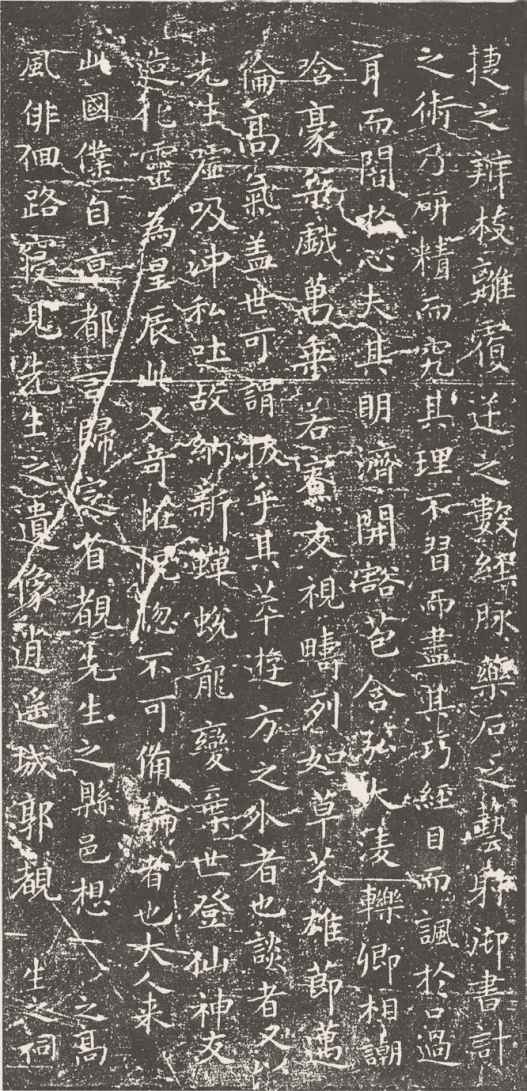 捷之辨枝離覆逆之數經脉藥石之藝射御書計
之術乃研精而究其理不習而盡其巧經目而諷於口過
耳而闇於心夫其明濟開豁苞含弘大淩轢卿相謿
哈豪桀戯萬乗若寮友視疇列如草芥雄節邁
倫髙氣盖世可謂拔乎其萃遊方之外者也談者又以
先生嘘吸沖和吐故納新蟬蛻龍變棄世登仙神友
造化靈為星辰此又奇恠恍惚不可備論者也大人来
此國僕自京都言歸定省覩先生之縣邑想之髙
風俳佪路寝見先生之遺像逍遥城郭覩生之祠